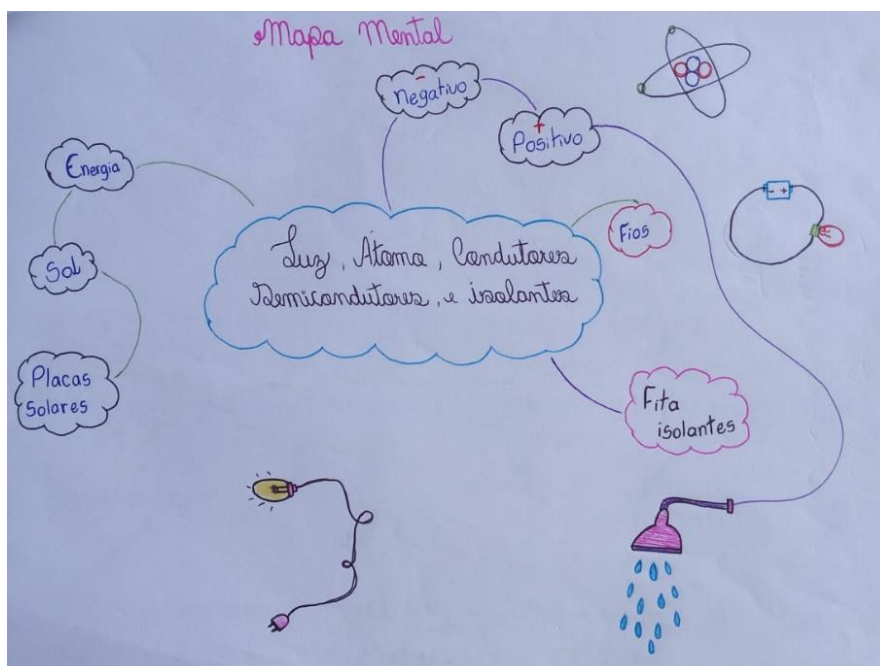 Mapa Mental
-
Negativo
+
Positivo
Energia
Sol
Placas
Solares
Luz, Átomo, Condutores
Semicondutores, e isolantes
Fios
Fita
isolantes
- +